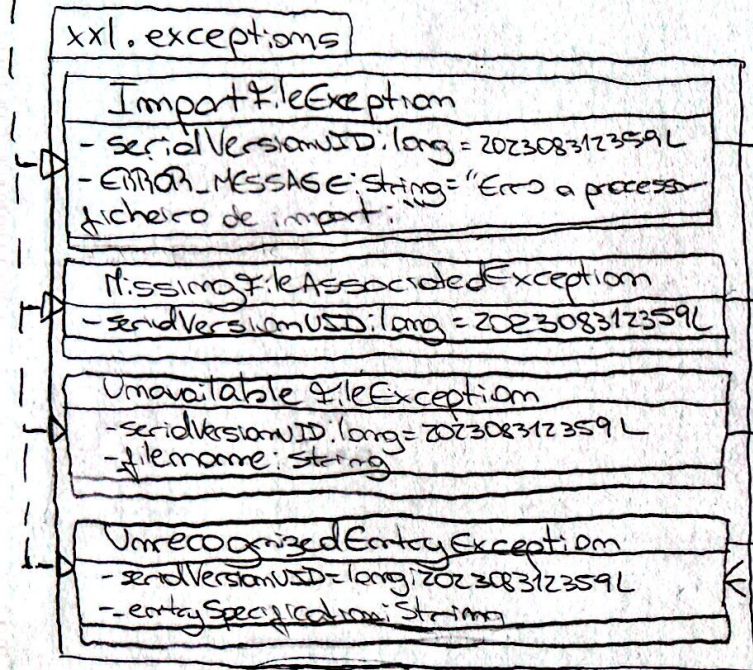 xxl.exceptions
ImportFileException
- serialVersionUID: long = 202308312359L
- ERROR_MESSAGE: String = "Erro a processar
ficheiro de import: "
MissingFileAssociatedException
- serialVersionUID: long = 202308312359L
UnavailableFileException
- serialVersionUID: long = 202308312359L
- filename: String
UnrecognizedEntryException
- serialVersionUID = long: 202308312359L
- entrySpecification: String